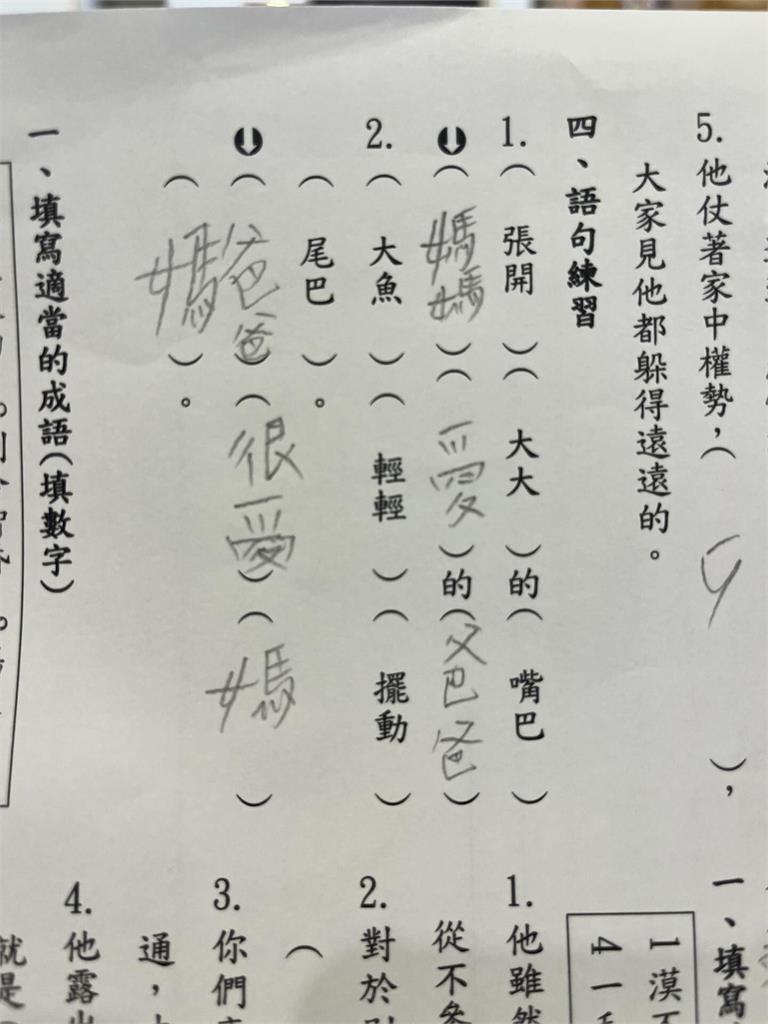 5. 他仗著家中權勢，（ 9 ），
大家見他都躲得遠遠的。
四、語句練習
1.（張開）（大大）的（嘴巴）
（媽媽）（愛）的（爸爸）
2.（大魚）（輕輕）（擺動）
（尾巴）。
（爸爸）（很愛）（媽）
（媽）。
一、填寫適當的成語（填數字）
一、填寫
1 漠不
4 一
1. 他雖然
從不參
2. 對於
（
3. 你們
通，
4. 他露出
就是